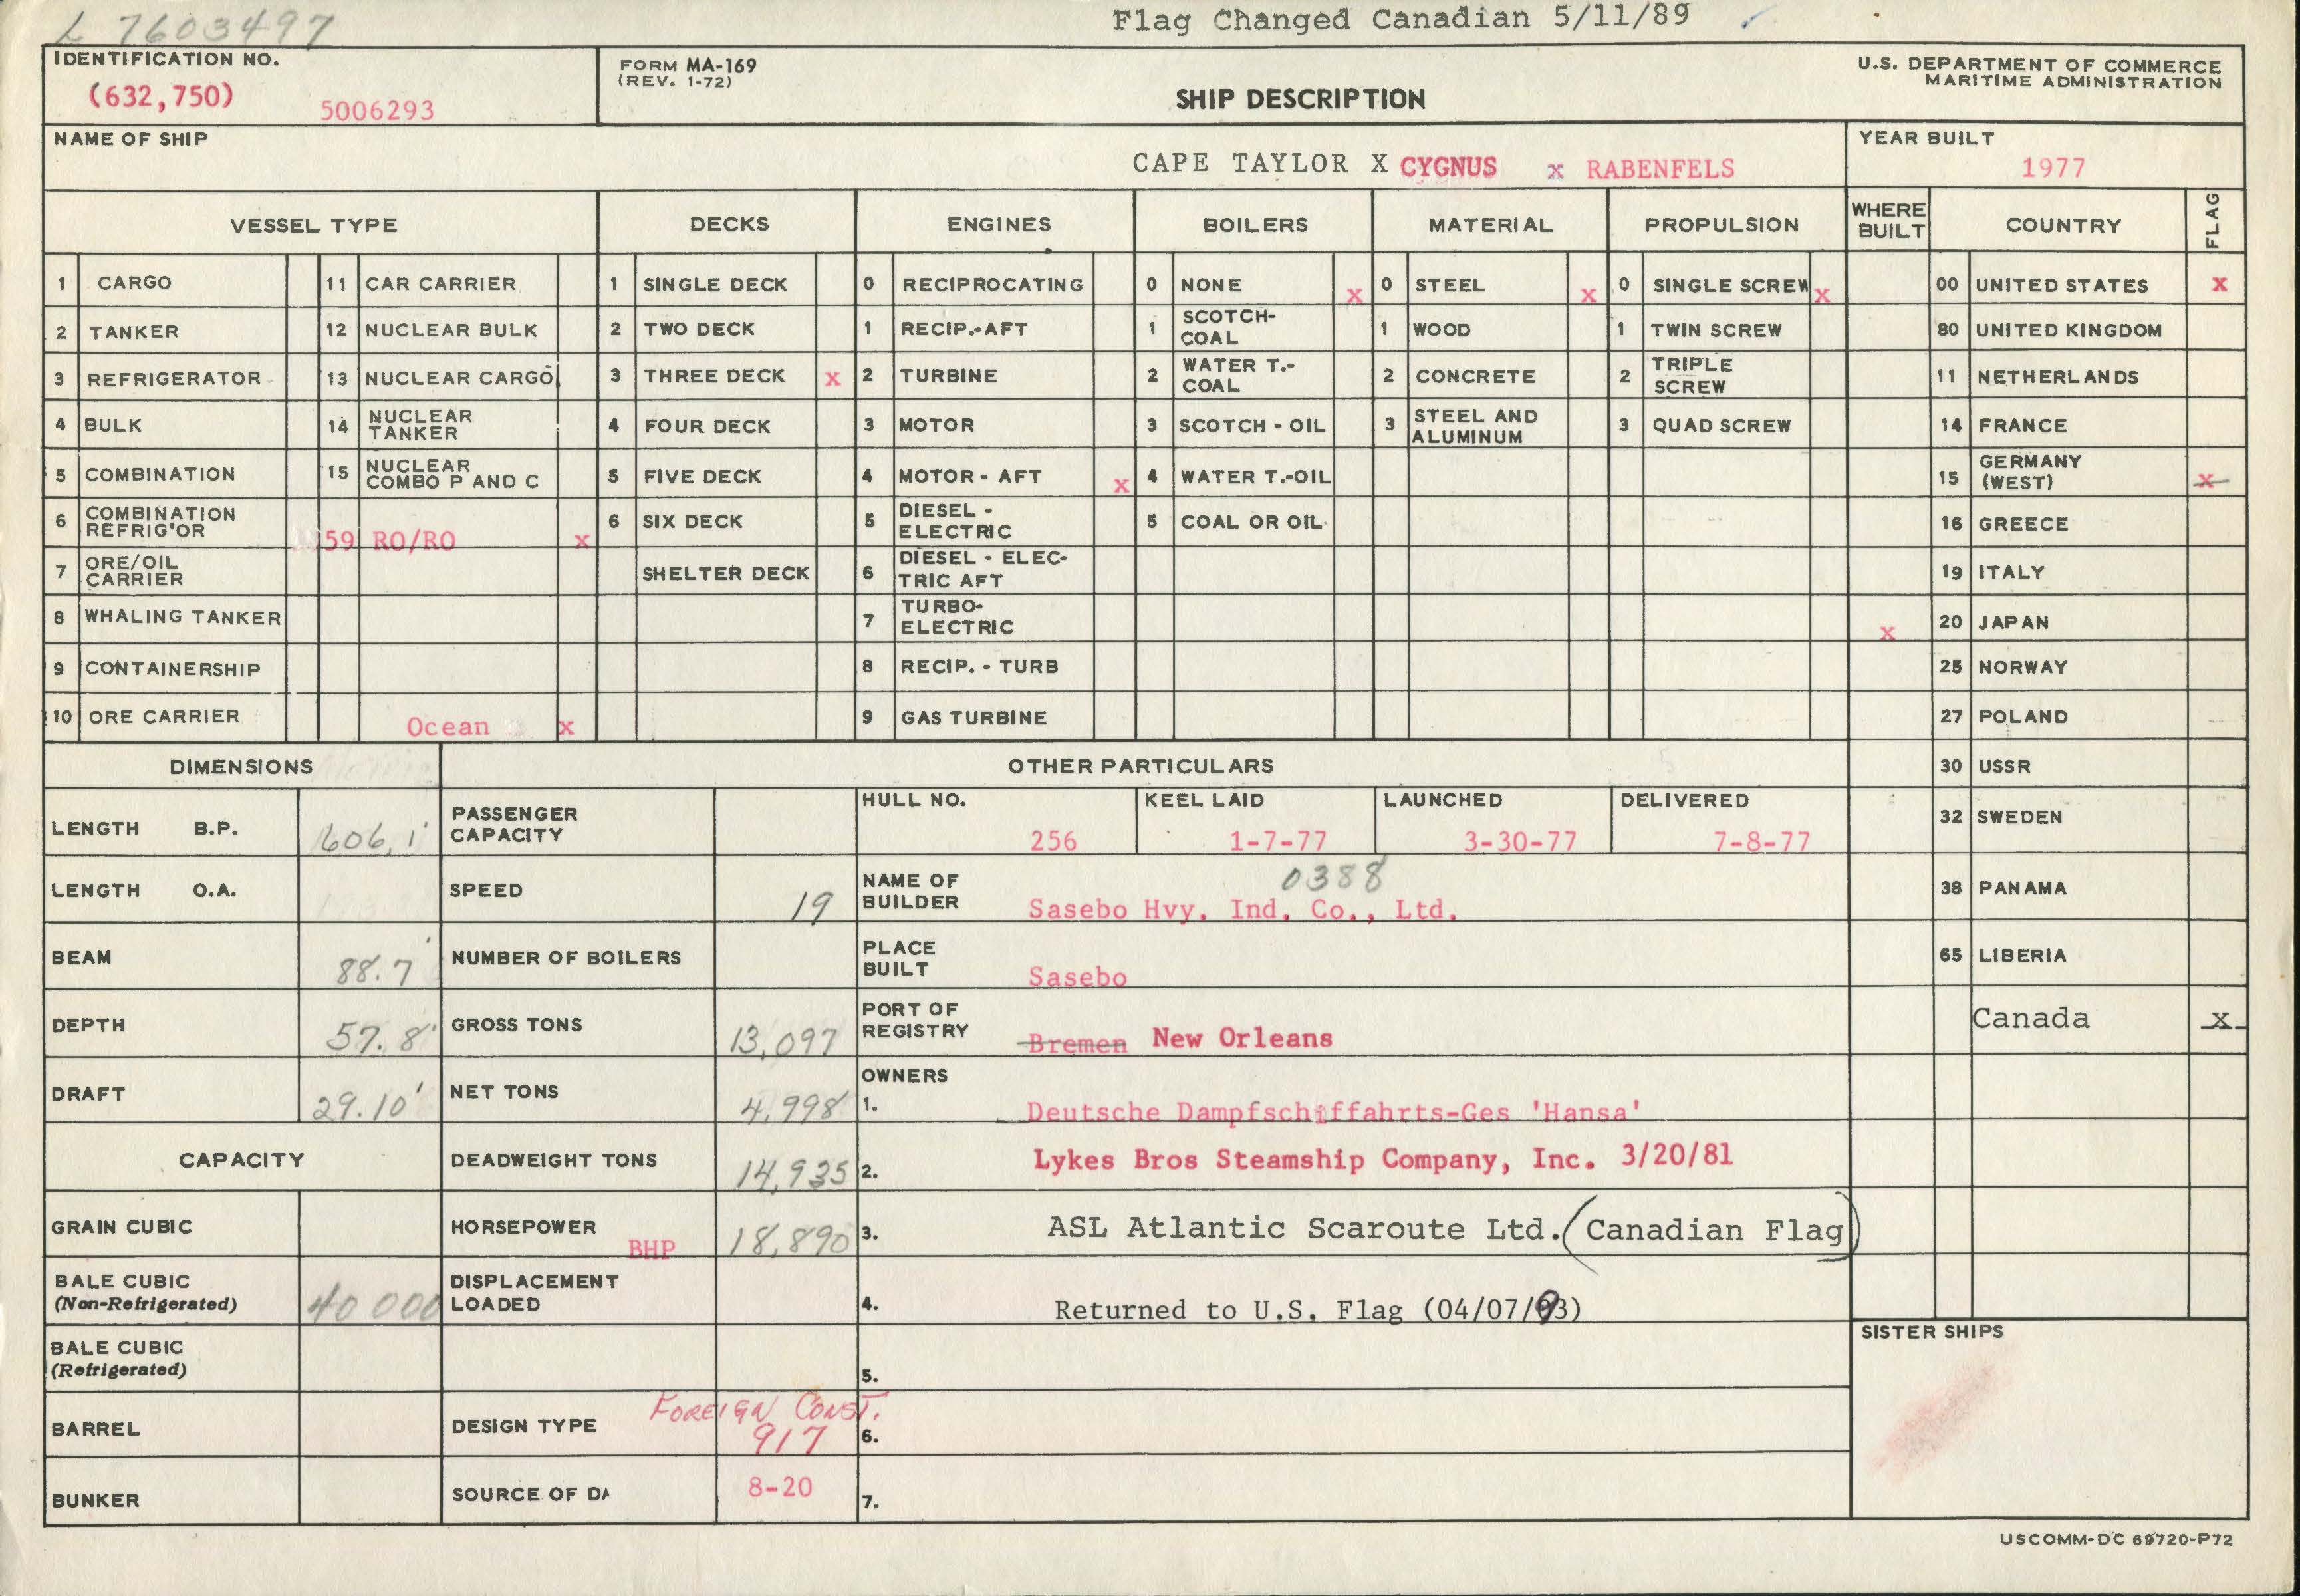 L 7603497
Flag Changed Canadian 5/11/89
IDENTIFICATION NO.
(632,750) 5006293
FORM MA-169
(REV. 1-72)
SHIP DESCRIPTION
U.S. DEPARTMENT OF COMMERCE
MARITIME ADMINISTRATION
NAME OF SHIP
CAPE TAYLOR X CYGNUS x RABENFELS
YEAR BUILT
1977
VESSEL TYPE DECKS ENGINES BOILERS MATERIAL PROPULSION WHERE BUILT COUNTRY FLAG
1 CARGO 11 CAR CARRIER 1 SINGLE DECK 0 RECIPROCATING 0 NONE x 0 STEEL x 0 SINGLE SCREW x 00 UNITED STATES x
2 TANKER 12 NUCLEAR BULK 2 TWO DECK 1 RECIP.-AFT 1 SCOTCH-COAL 1 WOOD 1 TWIN SCREW 80 UNITED KINGDOM
3 REFRIGERATOR 13 NUCLEAR CARGO 3 THREE DECK x 2 TURBINE 2 WATER T.-COAL 2 CONCRETE 2 TRIPLE SCREW 11 NETHERLANDS
4 BULK 14 NUCLEAR TANKER 4 FOUR DECK 3 MOTOR 3 SCOTCH - OIL 3 STEEL AND ALUMINUM 3 QUAD SCREW 14 FRANCE
5 COMBINATION 15 NUCLEAR COMBO P AND C 5 FIVE DECK 4 MOTOR - AFT x 4 WATER T.-OIL 15 GERMANY (WEST) x
6 COMBINATION REFRIG'OR 59 RO/RO x 6 SIX DECK 5 DIESEL - ELECTRIC 5 COAL OR OIL 16 GREECE
7 ORE/OIL CARRIER SHELTER DECK 6 DIESEL - ELEC-TRIC AFT 19 ITALY
8 WHALING TANKER 7 TURBO-ELECTRIC x 20 JAPAN
9 CONTAINERSHIP 8 RECIP. - TURB 25 NORWAY
10 ORE CARRIER Ocean x 9 GAS TURBINE 27 POLAND
DIMENSIONS OTHER PARTICULARS 30 USSR
LENGTH B.P. 606.1' PASSENGER CAPACITY HULL NO. 256 KEEL LAID 1-7-77 LAUNCHED 3-30-77 DELIVERED 7-8-77 32 SWEDEN
LENGTH O.A. SPEED 19 NAME OF BUILDER 0388 Sasebo Hvy. Ind. Co., Ltd. 38 PANAMA
BEAM 88.7' NUMBER OF BOILERS PLACE BUILT Sasebo 65 LIBERIA
DEPTH 57.8' GROSS TONS 13,097 PORT OF REGISTRY Bremen New Orleans Canada x
DRAFT 29.10' NET TONS 4,998 OWNERS 1. Deutsche Dampfschiffahrts-Ges 'Hansa'
CAPACITY DEADWEIGHT TONS 14,935 2. Lykes Bros Steamship Company, Inc. 3/20/81
GRAIN CUBIC HORSEPOWER BHP 18,890 3. ASL Atlantic Scaroute Ltd. (Canadian Flag)
BALE CUBIC (Non-Refrigerated) 40 000 DISPLACEMENT LOADED 4. Returned to U.S. Flag (04/07/93)
SISTER SHIPS
BALE CUBIC (Refrigerated) 5.
BARREL DESIGN TYPE FOREIGN CONST. 917 6.
BUNKER SOURCE OF DA 8-20 7.
USCOMM-DC 69720-P72